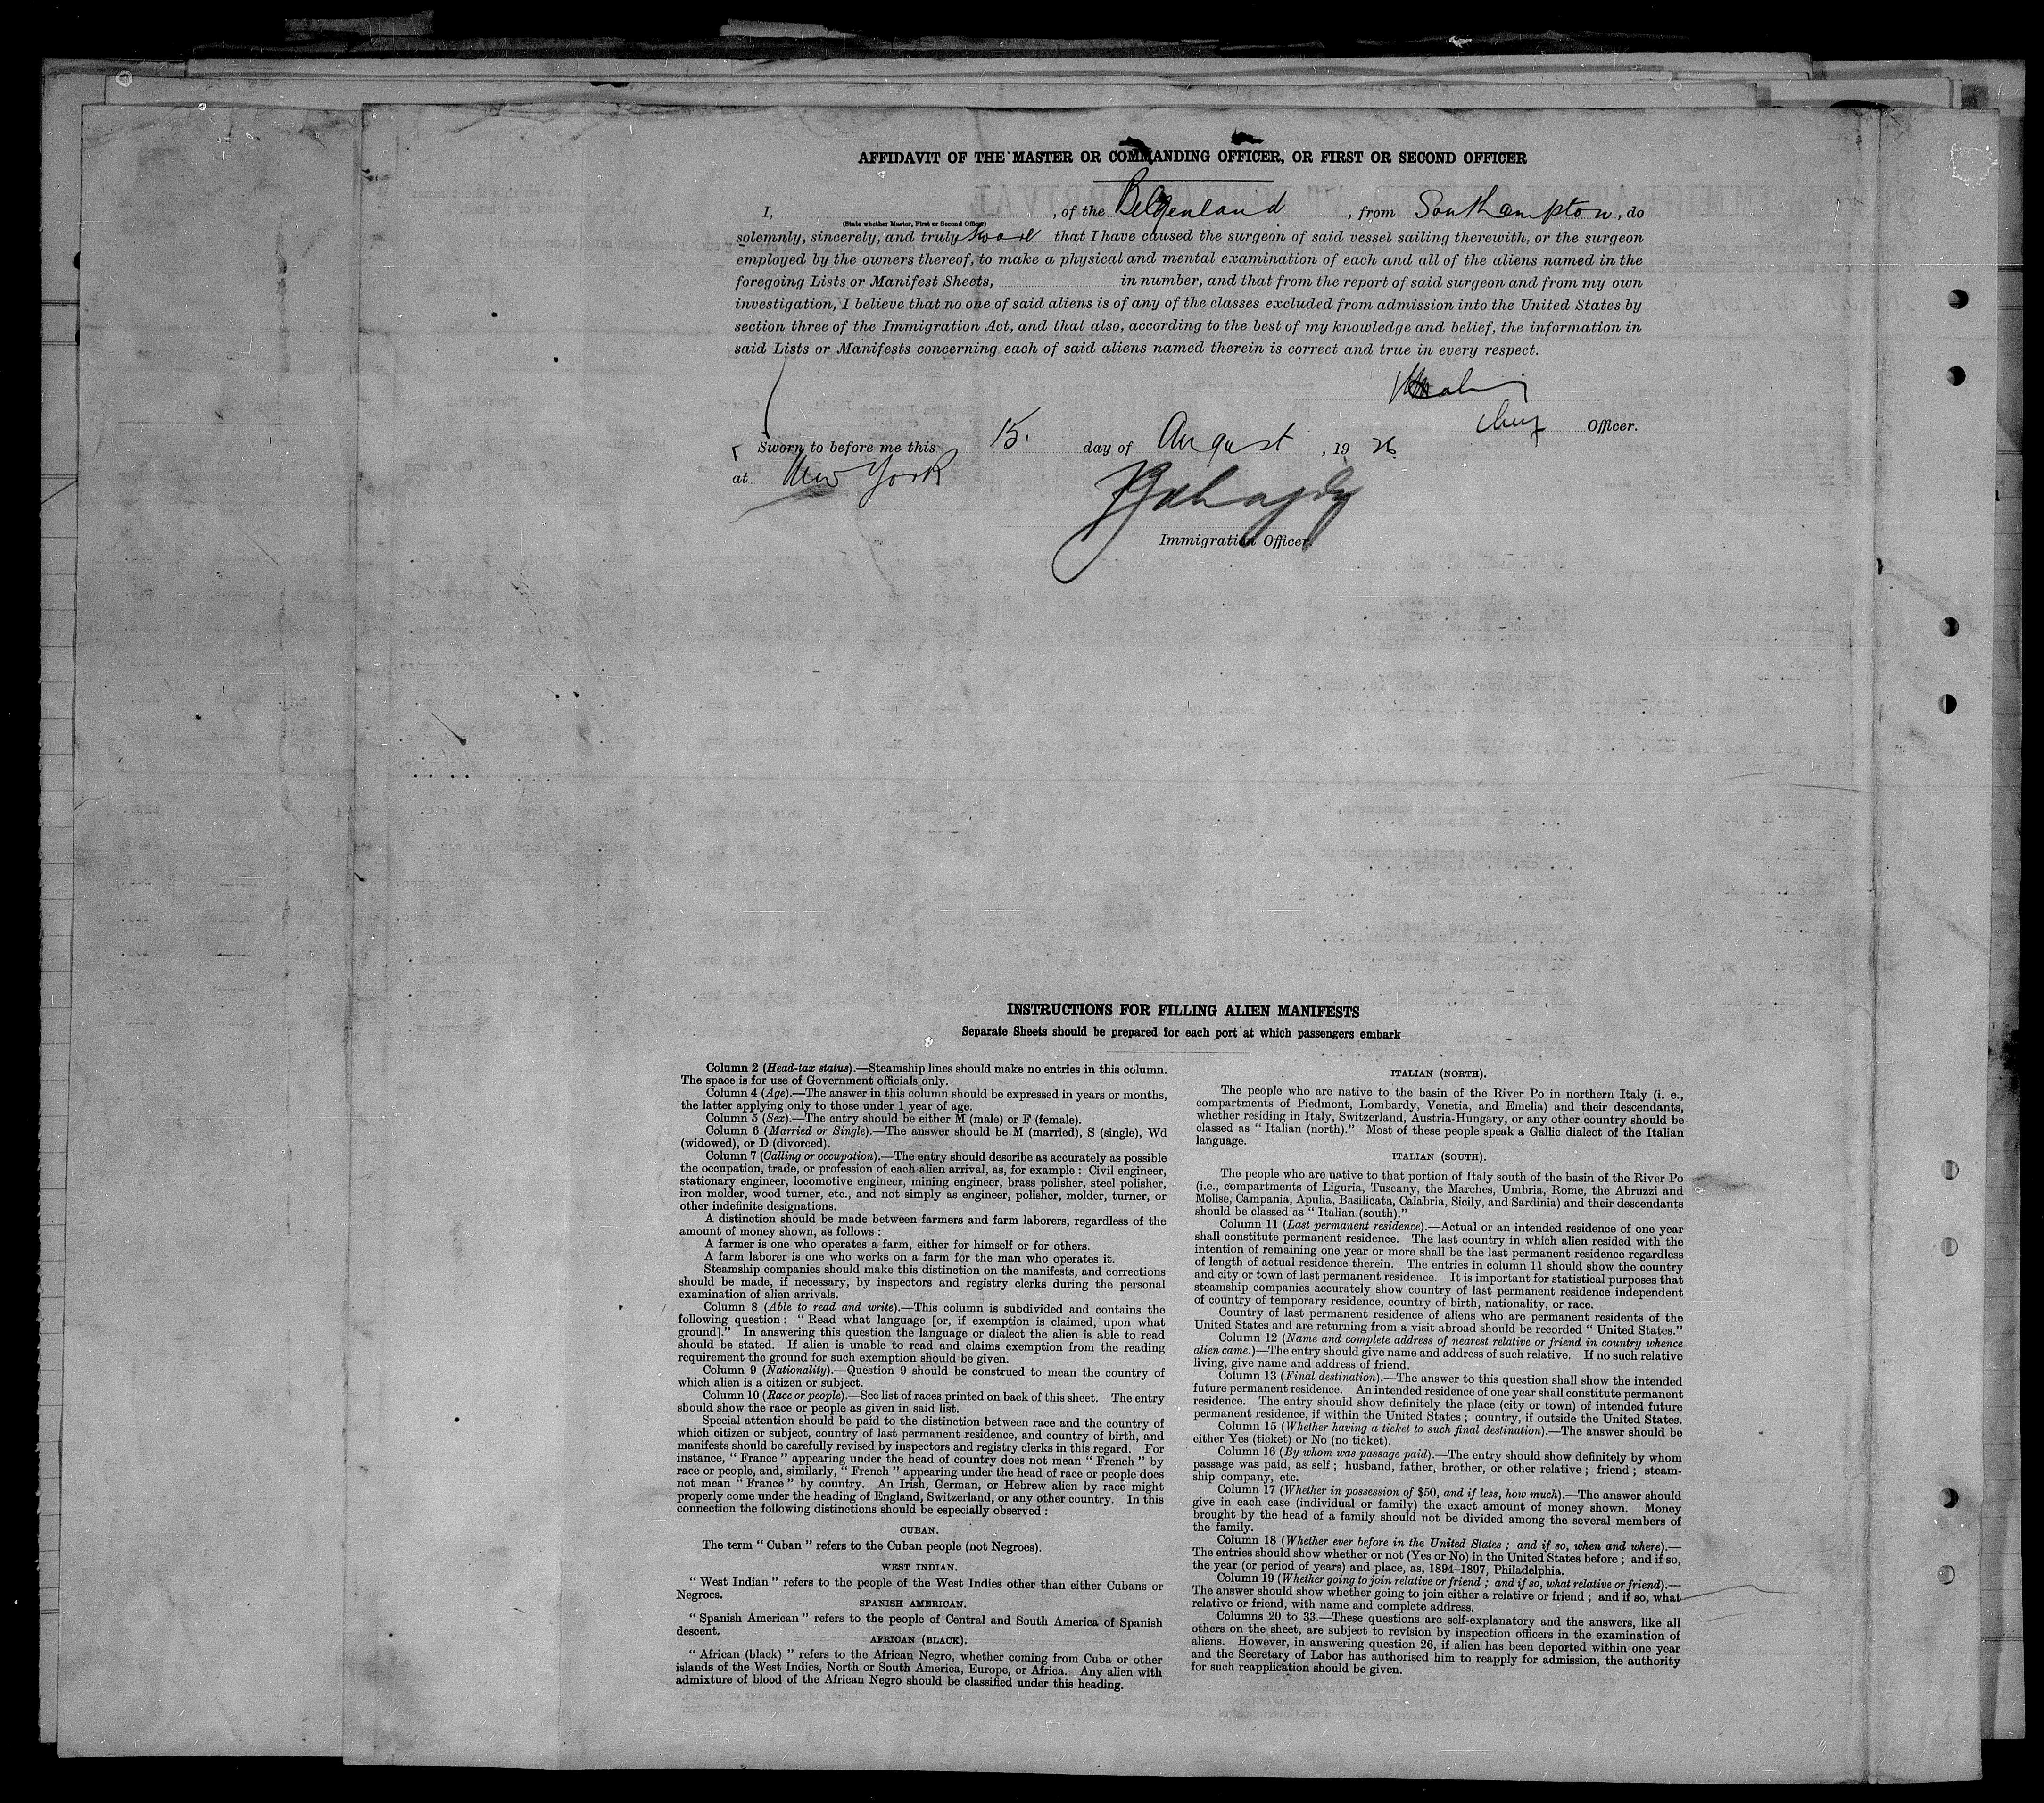 AFFIDAVIT OF THE MASTER OR COMMANDING OFFICER, OR FIRST OR SECOND OFFICER
I, , of the Belgenland , from Southampton, do
(State whether Master, First or Second Officer)
solemnly, sincerely, and truly swear that I have caused the surgeon of said vessel sailing therewith, or the surgeon
employed by the owners thereof, to make a physical and mental examination of each and all of the aliens named in the
foregoing Lists or Manifest Sheets, in number, and that from the report of said surgeon and from my own
investigation, I believe that no one of said aliens is of any of the classes excluded from admission into the United States by
section three of the Immigration Act, and that also, according to the best of my knowledge and belief, the information in
said Lists or Manifests concerning each of said aliens named therein is correct and true in every respect.
Chief Officer.
Sworn to before me this 15. day of August , 19 26
at New York
Immigration Officer.
INSTRUCTIONS FOR FILLING ALIEN MANIFESTS
Separate Sheets should be prepared for each port at which passengers embark
Column 2 (Head-tax status).—Steamship lines should make no entries in this column.
The space is for use of Government officials only.
Column 4 (Age).—The answer in this column should be expressed in years or months,
the latter applying only to those under 1 year of age.
Column 5 (Sex).—The entry should be either M (male) or F (female).
Column 6 (Married or Single).—The answer should be M (married), S (single), Wd
(widowed), or D (divorced).
Column 7 (Calling or occupation).—The entry should describe as accurately as possible
the occupation, trade, or profession of each alien arrival, as, for example : Civil engineer,
stationary engineer, locomotive engineer, mining engineer, brass polisher, steel polisher,
iron molder, wood turner, etc., and not simply as engineer, polisher, molder, turner, or
other indefinite designations.
A distinction should be made between farmers and farm laborers, regardless of the
amount of money shown, as follows :
A farmer is one who operates a farm, either for himself or for others.
A farm laborer is one who works on a farm for the man who operates it.
Steamship companies should make this distinction on the manifests, and corrections
should be made, if necessary, by inspectors and registry clerks during the personal
examination of alien arrivals.
Column 8 (Able to read and write).—This column is subdivided and contains the
following question : “ Read what language [or, if exemption is claimed, upon what
ground].” In answering this question the language or dialect the alien is able to read
should be stated. If alien is unable to read and claims exemption from the reading
requirement the ground for such exemption should be given.
Column 9 (Nationality).—Question 9 should be construed to mean the country of
which alien is a citizen or subject.
Column 10 (Race or people).—See list of races printed on back of this sheet. The entry
should show the race or people as given in said list.
Special attention should be paid to the distinction between race and the country of
which citizen or subject, country of last permanent residence, and country of birth, and
manifests should be carefully revised by inspectors and registry clerks in this regard. For
instance, “ France ” appearing under the head of country does not mean “ French ” by
race or people, and, similarly, “ French ” appearing under the head of race or people does
not mean “ France ” by country. An Irish, German, or Hebrew alien by race might
properly come under the heading of England, Switzerland, or any other country. In this
connection the following distinctions should be especially observed :
CUBAN.
The term “ Cuban ” refers to the Cuban people (not Negroes).
WEST INDIAN.
“ West Indian ” refers to the people of the West Indies other than either Cubans or
Negroes.
SPANISH AMERICAN.
“ Spanish American ” refers to the people of Central and South America of Spanish
descent.
AFRICAN (BLACK).
“ African (black) ” refers to the African Negro, whether coming from Cuba or other
islands of the West Indies, North or South America, Europe, or Africa. Any alien with
admixture of blood of the African Negro should be classified under this heading.
ITALIAN (NORTH).
The people who are native to the basin of the River Po in northern Italy (i. e.,
compartments of Piedmont, Lombardy, Venetia, and Emelia) and their descendants,
whether residing in Italy, Switzerland, Austria-Hungary, or any other country should be
classed as “ Italian (north).” Most of these people speak a Gallic dialect of the Italian
language.
ITALIAN (SOUTH).
The people who are native to that portion of Italy south of the basin of the River Po
(i.e., compartments of Liguria, Tuscany, the Marches, Umbria, Rome, the Abruzzi and
Molise, Campania, Apulia, Basilicata, Calabria, Sicily, and Sardinia) and their descendants
should be classed as “ Italian (south).”
Column 11 (Last permanent residence).—Actual or an intended residence of one year
shall constitute permanent residence. The last country in which alien resided with the
intention of remaining one year or more shall be the last permanent residence regardless
of length of actual residence therein. The entries in column 11 should show the country
and city or town of last permanent residence. It is important for statistical purposes that
steamship companies accurately show country of last permanent residence independent
of country of temporary residence, country of birth, nationality, or race.
Country of last permanent residence of aliens who are permanent residents of the
United States and are returning from a visit abroad should be recorded “ United States.”
Column 12 (Name and complete address of nearest relative or friend in country whence
alien came.)—The entry should give name and address of such relative. If no such relative
living, give name and address of friend.
Column 13 (Final destination).—The answer to this question shall show the intended
future permanent residence. An intended residence of one year shall constitute permanent
residence. The entry should show definitely the place (city or town) of intended future
permanent residence, if within the United States ; country, if outside the United States.
Column 15 (Whether having a ticket to such final destination).—The answer should be
either Yes (ticket) or No (no ticket).
Column 16 (By whom was passage paid).—The entry should show definitely by whom
passage was paid, as self ; husband, father, brother, or other relative ; friend ; steam-
ship company, etc.
Column 17 (Whether in possession of $50, and if less, how much).—The answer should
give in each case (individual or family) the exact amount of money shown. Money
brought by the head of a family should not be divided among the several members of
the family.
Column 18 (Whether ever before in the United States ; and if so, when and where).—
The entries should show whether or not (Yes or No) in the United States before ; and if so,
the year (or period of years) and place, as, 1894–1897, Philadelphia.
Column 19 (Whether going to join relative or friend ; and if so, what relative or friend).—
The answer should show whether going to join either a relative or friend ; and if so, what
relative or friend, with name and complete address.
Columns 20 to 33.—These questions are self-explanatory and the answers, like all
others on the sheet, are subject to revision by inspection officers in the examination of
aliens. However, in answering question 26, if alien has been deported within one year
and the Secretary of Labor has authorised him to reapply for admission, the authority
for such reapplication should be given.